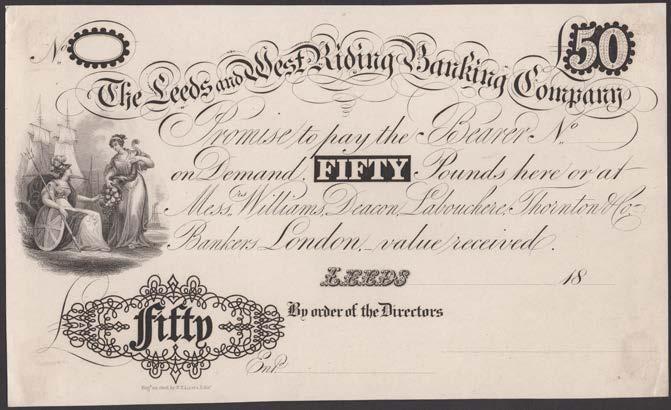 No £50
The Leeds and West Riding Banking Company
Promise to pay the Bearer No
on Demand, FIFTY Pounds here or at
Messrs Williams, Deacon, Labouchere, Thornton & Co
Bankers London, value received.
LEEDS 18
£ Fifty
By order of the Directors
Entd